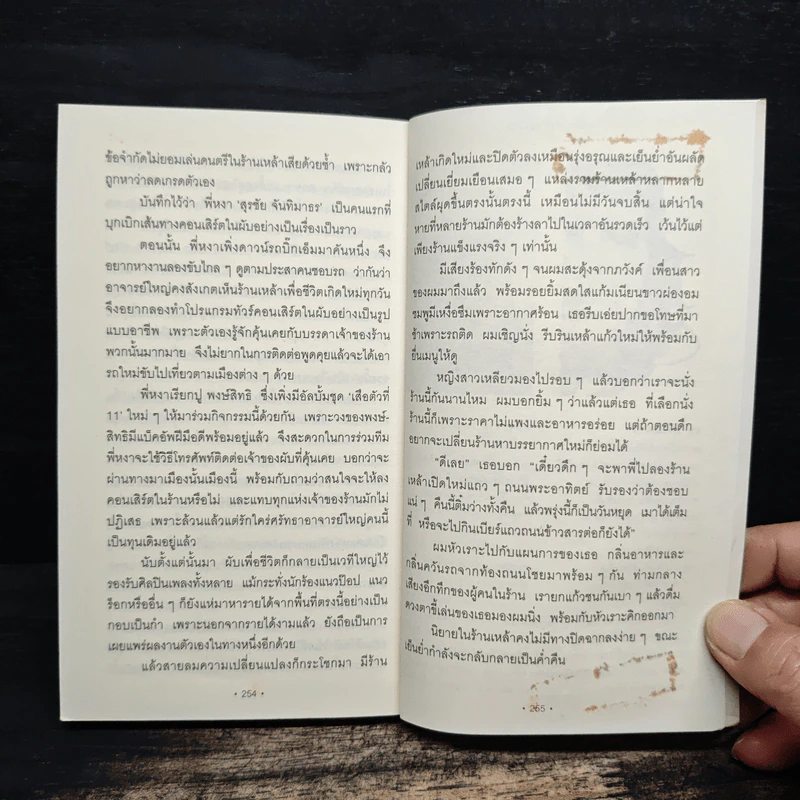 ข้อจำกัดไม่ยอมเล่นดนตรีในร้านเหล้าเสียด้วยซ้ำ เพราะกลัว
ถูกหาว่าลดเกรดตัวเอง
บันทึกไว้ว่า พี่หงา ‘สุรชัย จันทิมาธร’ เป็นคนแรกที่
บุกเบิกเส้นทางคอนเสิร์ตในผับอย่างเป็นเรื่องเป็นราว
ตอนนั้น พี่หงาเพิ่งดาวน์รถบิ๊กเอ็มมาคันหนึ่ง จึง
อยากหางานลองขับไกล ๆ ดูตามประสาคนชอบรถ ว่ากันว่า
อาจารย์ใหญ่คงสังเกตเห็นร้านเหล้าเพื่อชีวิตเกิดใหม่ทุกวัน
จึงอยากลองทำโปรแกรมทัวร์คอนเสิร์ตในผับอย่างเป็นรูป
แบบอาชีพ เพราะตัวเองรู้จักคุ้นเคยกับบรรดาเจ้าของร้าน
พวกนั้นมากมาย จึงไม่ยากในการติดต่อพูดคุยแล้วจะได้เอา
รถใหม่ขับไปเที่ยวตามเมืองต่าง ๆ ด้วย
พี่หงาเรียกปู พงษ์สิทธิ ซึ่งเพิ่งมีอัลบั้มชุด ‘เสือตัวที่
11’ ใหม่ ๆ ให้มาร่วมกิจกรรมนี้ด้วยกัน เพราะวงของพงษ์-
สิทธิมีแบ็คอัพฝีมือดีพร้อมอยู่แล้ว จึงสะดวกในการร่วมทีม
พี่หงาจะใช้วิธีโทรศัพท์ติดต่อเจ้าของผับที่คุ้นเคย บอกว่าจะ
ผ่านทางมาเมืองนั้นเมืองนี้ พร้อมกับถามว่าสนใจจะให้ลง
คอนเสิร์ตในร้านหรือไม่ และแทบทุกแห่งเจ้าของร้านมักไม่
ปฏิเสธ เพราะล้วนแล้วแต่รักใคร่ศรัทธาอาจารย์ใหญ่คนนี้
เป็นทุนเดิมอยู่แล้ว
นับตั้งแต่นั้นมา ผับเพื่อชีวิตก็กลายเป็นเวทีใหญ่ไว้
รองรับศิลปินเพลงทั้งหลาย แม้กระทั่งนักร้องแนวป๊อป แนว
ร็อกหรืออื่น ๆ ก็ยังแห่มาหารายได้จากพื้นที่ตรงนี้อย่างเป็น
กอบเป็นกำ เพราะนอกจากรายได้งามแล้ว ยังถือเป็นการ
เผยแพร่ผลงานตัวเองในทางหนึ่งอีกด้วย
แล้วสายลมความเปลี่ยนแปลงก็กระโชกมา มีร้าน
• 254 •
เหล้าเกิดใหม่และปิดตัวลงเหมือนรุ่งอรุณและเย็นย่ำอันผลัด
เปลี่ยนเยี่ยมเยือนเสมอ ๆ แหล่งรวมร้านเหล้าหลากหลาย
สไตล์ผุดขึ้นตรงนั้นตรงนี้ เหมือนไม่มีวันจบสิ้น แต่น่าใจ
หายที่หลายร้านมักต้องร้างลาไปในเวลาอันรวดเร็ว เว้นไว้แต่
เพียงร้านแข็งแรงจริง ๆ เท่านั้น
มีเสียงร้องทักดัง ๆ จนผมสะดุ้งจากภวังค์ เพื่อนสาว
ของผมมาถึงแล้ว พร้อมรอยยิ้มสดใสแก้มเนียนขาวผ่องอม
ชมพูมีเหงื่อซึมเพราะอากาศร้อน เธอรีบเอ่ยปากขอโทษที่มา
ช้าเพราะรถติด ผมเชิญนั่ง รีบรินเหล้าแก้วใหม่ให้พร้อมกับ
ยื่นเมนูให้ดู
หญิงสาวเหลียวมองไปรอบ ๆ แล้วบอกว่าเราจะนั่ง
ร้านนี้กันนานไหม ผมบอกยิ้ม ๆ ว่าแล้วแต่เธอ ที่เลือกนั่ง
ร้านนี้ก็เพราะราคาไม่แพงและอาหารอร่อย แต่ถ้าตอนดึก
อยากจะเปลี่ยนร้านหาบรรยากาศใหม่ก็ย่อมได้
“ดีเลย” เธอบอก “เดี๋ยวดึก ๆ จะพาพี่ไปลองร้าน
เหล้าเปิดใหม่แถว ๆ ถนนพระอาทิตย์ รับรองว่าต้องชอบ
แน่ ๆ คืนนี้ติ๋มว่างทั้งคืน แล้วพรุ่งนี้ก็เป็นวันหยุด เมาได้เต็ม
ที่ หรือจะไปกินเบียร์แถวถนนข้าวสารต่อก็ยังได้”
ผมหัวเราะไปกับแผนการของเธอ กลิ่นอาหารและ
กลิ่นควันรถจากท้องถนนโชยมาพร้อม ๆ กัน ท่ามกลาง
เสียงอึกทึกของผู้คนในร้าน เรายกแก้วชนกันเบา ๆ แล้วดื่ม
ดวงตาขี้เล่นของเธอมองผมนิ่ง พร้อมกับหัวเราะคิกออกมา
นิยายในร้านเหล้าคงไม่มีทางปิดฉากลงง่าย ๆ ขณะ
เย็นย่ำกำลังจะกลับกลายเป็นค่ำคืน
• 255 •